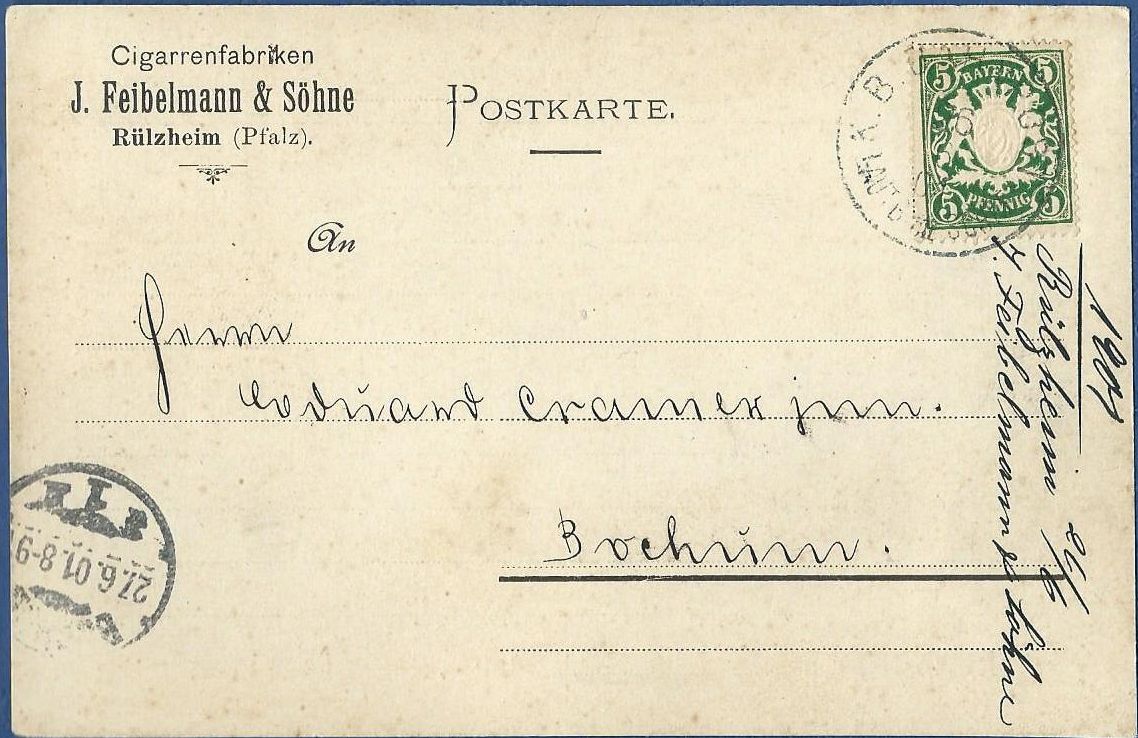 Cigarrenfabriken
J. Feibelmann & Söhne
Rülzheim (Pfalz).
POSTKARTE.
5 BAYERN 5
5 PFENNIG 5
An
Herrn
Eduard Cramer jun.
Bochum.
27.6.01.8-9
1901
Rülzheim 26/6
J. Feibelmann & Söhne